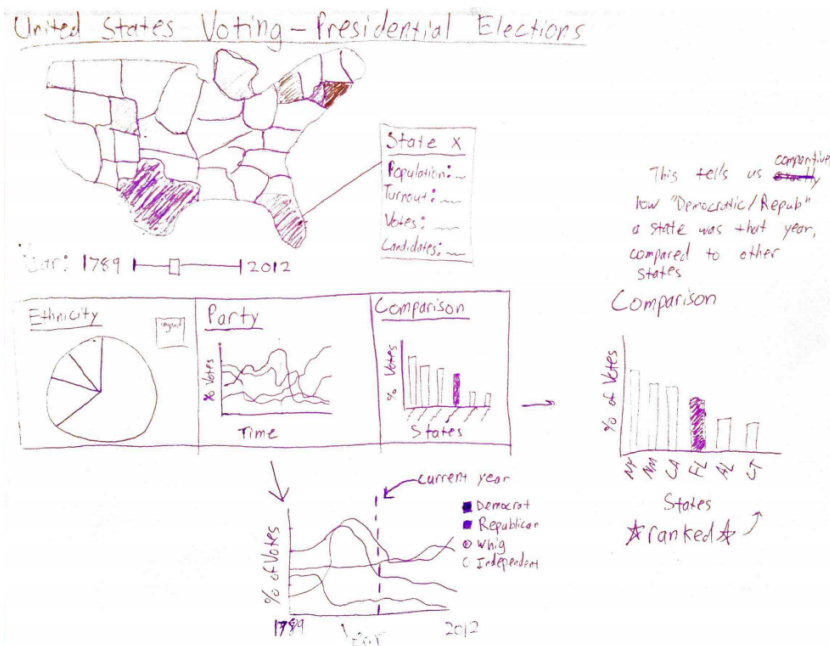 United States Voting – Presidential Elections
State X
Population:
Turnout:
Votes:
Candidates:
Year: 1789
2012
This tells us comparitively
how "Democratic/Repub"
a state was that year,
compared to other
states
Ethnicity
legend
Party
% Votes
Time
Comparison
% Votes
States
Comparison
% of Votes
NY
NM
CA
FL
AL
CT
States
☆ranked☆
current year
Democrat
Republican
Whig
Independent
% of Votes
1789
Year
2012